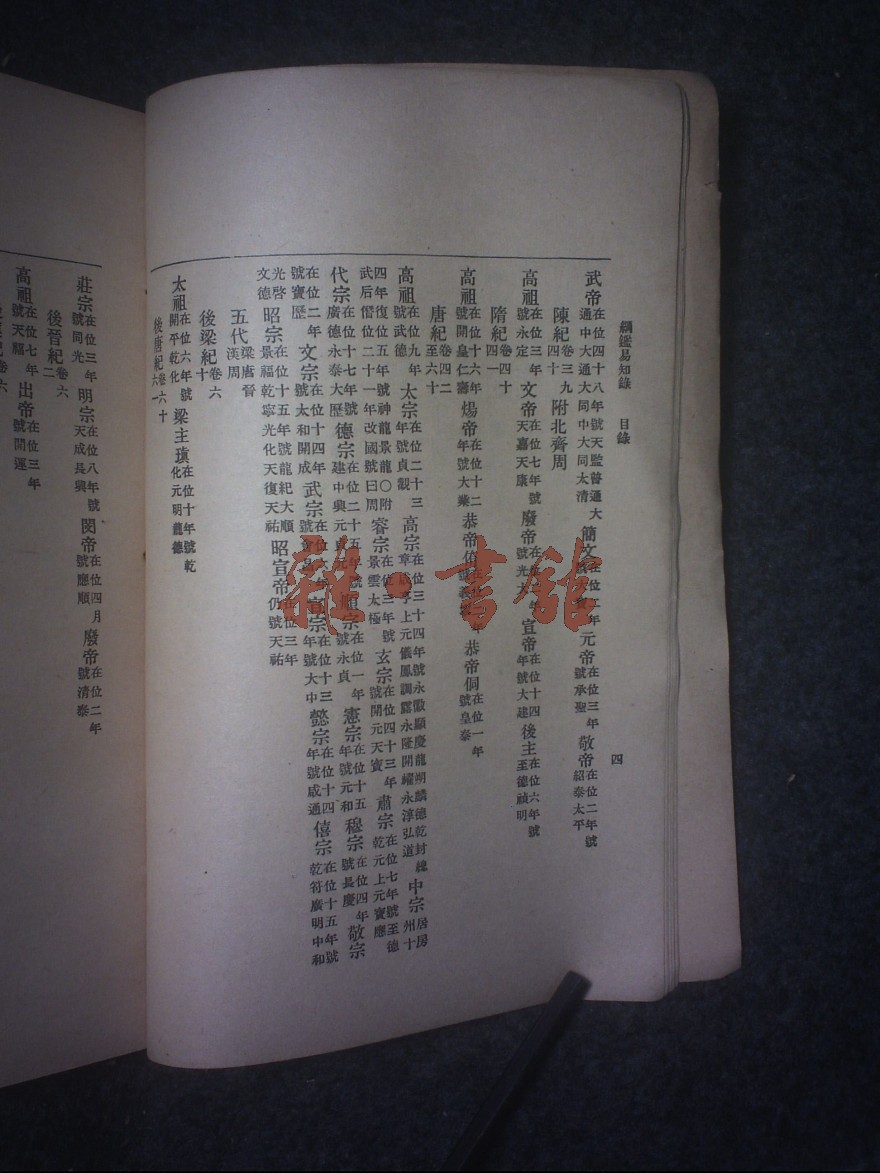 綱鑑易知錄 目錄 四
武帝在位四十八年號天監普通大通中大通大同中大同太清 簡文在位二年 元帝在位三年號承聖 敬帝在位二年號紹泰太平
陳紀卷三九四十 附北齊周
高祖在位三年號永定 文帝在位七年號天嘉天康 廢帝在位 年號光大 宣帝在位十四年號大建 後主在位六年號至德禎明
隋紀卷四十四一
高祖在位十六年號開皇仁壽 煬帝在位十二年號大業 恭帝侑 恭帝侗在位一年號皇泰
唐紀卷四二至六十
高祖在位九年號武德 太宗在位二十三年號貞觀 高宗在位三十四年號永徽顯慶龍朔麟德乾封總章 上元儀鳳調露永隆開耀永淳弘道 中宗居房州十
四年復位五年號神龍景龍〇附武后僭位二十一年改國號曰周 睿宗在位三年號景雲太極 玄宗在位四十三年號開元天寶 肅宗在位七年號至德乾元上元寶應
代宗在位十七年號廣德永泰大歷 德宗在位二十五年號建中興元貞元 順宗在位一年號永貞 憲宗在位十五年號元和 穆宗在位四年號長慶 敬宗
在位二年號寶歷 文宗在位十四年號太和開成 武宗在位 年號會昌 宣宗在位十三年號大中 懿宗在位十四年號咸通 僖宗在位十五年號乾符廣明中和
光啓文德 昭宗在位十五年號龍紀大順景福乾寧光化天復天祐 昭宣帝在位三年仍號天祐
五代梁唐晉漢周
後梁紀卷六十
太祖在位六年號開平乾化 梁主瑱在位十年號乾化元明龍德
後唐紀卷六十六一
莊宗在位三年號同光 明宗在位八年號天成長興 閔帝在位四月號應順 廢帝在位二年號清泰
後晉紀卷六二
高祖在位七年號天福 出帝在位三年號開運
雜·書館